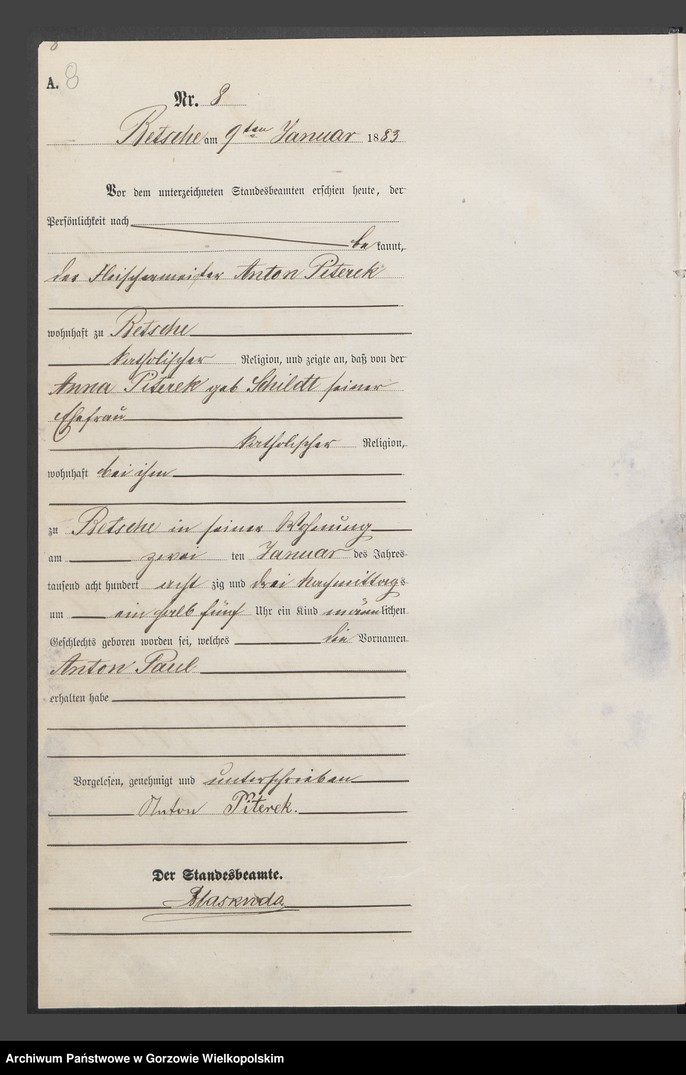 8
A. 8
Nr. 8
Betsche am 9ten Januar 1883
Vor dem unterzeichneten Standesbeamten erschien heute, der
Persönlichkeit nach
bekannt,
der Fleischermeister Anton Piterek
wohnhaft zu Betsche
katholischer Religion, und zeigte an, daß von der
Anna Piterek geb. Schildt seiner
Ehefrau
katholischer Religion,
wohnhaft bei ihm
zu Betsche in seiner Wohnung
am zwei ten Januar des Jahres
tausend acht hundert acht zig und drei Nachmittags
um ein halb fünf Uhr ein Kind männlichen
Geschlechts geboren worden sei, welches die Vornamen
Anton Paul
erhalten habe
Vorgelesen, genehmigt und unterschrieben
Anton Piterek.
Der Standesbeamte.
Archiwum Państwowe w Gorzowie Wielkopolskim